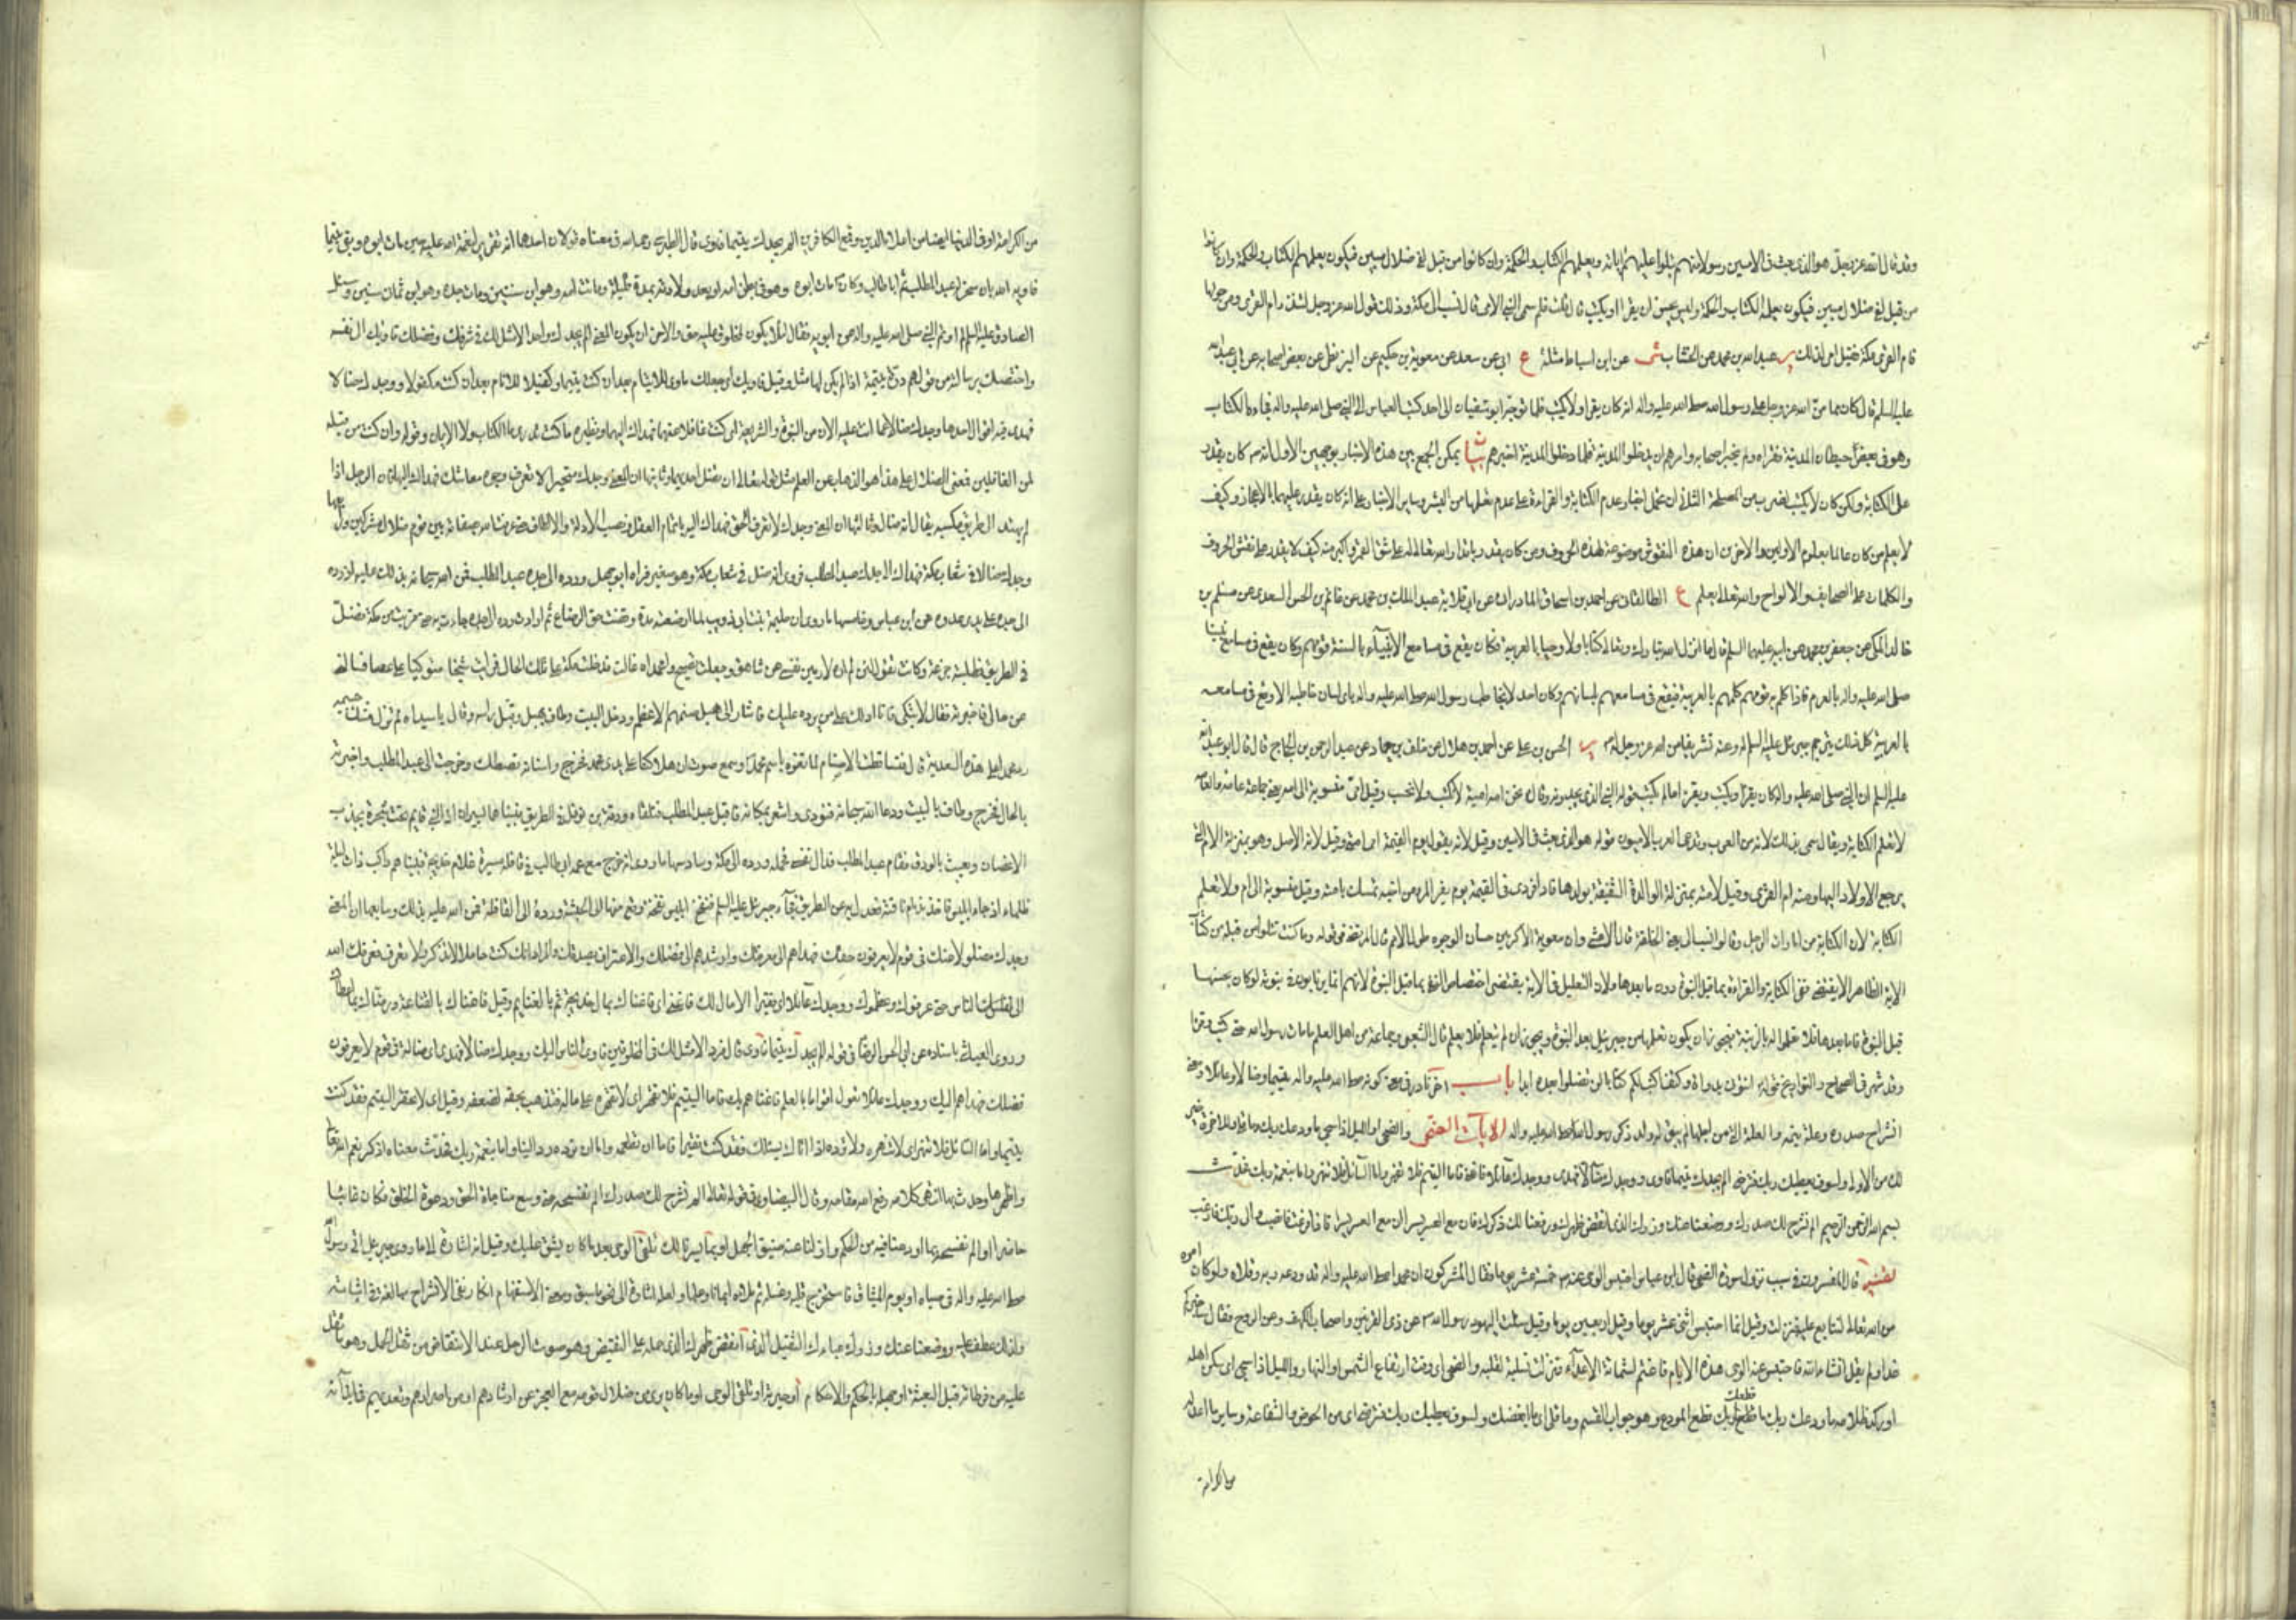 وقد قال الله عز وجل هو الذي بعث في الاميين رسولا منهم يتلوا عليهم اياته ويعلمهم الكتاب والحكمة وان كانوا من قبل لفي ضلال مبين فكيف يكون يعلمهم الكتاب والحكمة وان كانوا
من قبل لفي ضلال مبين فيكون يعلم الكتاب والحكمة وليس يحسن ان يقرا او يكتب قال قلت فلم سمي النبي الامي قال نسب الى مكة وذلك قول الله عز وجل لتنذر ام القرى ومن حولها
فام القرى مكة فقيل امي لذلك ير عبد الله بن محمد عن الخشاب شى عن ابن اسباط مثله ع ابي عن سعد عن معوية بن حكيم عن البزنطي عن بعض اصحابه عن ابي عبد الله
عليه السلم قال كان مما من الله عز وجل على رسول الله صلى الله عليه واله انه كان يقرا ولا يكتب فلما توجه ابو سفيان الى احد كتب العباس الى النبي صلى الله عليه واله فجاءه الكتاب
وهو في بعض حيطان المدينة فقراه ولم يخبر اصحابه وامرهم ان يدخلوا المدينة فلما دخلوا المدينة اخبرهم بيان يمكن الجمع بين هذه الاخبار بوجهين الاول انه كان يقدر
على الكتابة ولكن كان لا يكتب لضرب من المصلحة الثاني ان نحمل اخبار عدم الكتابة والقراءة على عدم تعلمها من البشر وساير الاخبار على انه كان يقدر عليهما بالاعجاز وكيف
لا يعلم من كان عالما بعلوم الاولين والاخرين ان هذه النقوش موضوعة لهذه الحروف ومن كان يقدر باقدار الله تعالى له على شق القمر واكبر منه كيف لا يقدر على نقش الحروف
والكلمات على الصحايف والالواح والله تعالى يعلم ع الطالقاني عن احمد بن اسحاق المادراني عن ابي قلابة عبد الملك بن محمد عن غانم بن الحسن السعدي عن مسلم بن
خالد المكي عن جعفر بن محمد عن ابيه عليهما السلم قال ما انزل الله تبارك وتعالى كتابا ولا وحيا الا بالعربية فكان يقع في مسامع الانبياء بالسنة قومهم وكان يقع في مسامع نبينا
صلى الله عليه واله بالعربية فاذا كلم به قومه كلمهم بالعربية فيقع في مسامعهم بلسانهم وكان احد لا يخاطب رسول الله صلى الله عليه واله باي لسان خاطبه الا وقع في مسامعه
بالعربية كل ذلك يترجم جبرئيل عليه السلم له وعنه تشريفا من الله عز وجل له ير الحسن بن علي عن احمد بن هلال عن خلف بن حماد عن عبد الرحمن بن الحجاج قال قال ابو عبد الله
عليه السلم ان النبي صلى الله عليه واله كان يقرا ويكتب ويقرا ما لم يكتب
لا تعلم الكتابة ويقال سمي بذلك لانه من العرب وتدعى العرب الاميون قوله هو الذي بعث في الاميين وقيل لانه يقول يوم القيمة امتي امتي وقيل لانه الاصل وهو بمنزلة الام التي
يرجع الاولاد اليها ومنه ام القرى وقيل لانه لامته بمنزلة الوالدة الشفيقة بولدها فاذا نودي في القيمة يوم يفر المرء من اخيه تمسك بامته وقيل منسوبة الى ام ولا تعلم
الكتابة لان الكتابة من امارات الرجل وقالوا نسب الى امة يعني الخلقة قال الاعشى وان معوية الاكرمين حسان الوجوه طوال الامم قال المرتضى في قوله وما كنت تتلوا من قبله من كتاب
الاية الظاهر الاية يقتضي نفي الكتابة والقراءة بما قبل النبوة دون ما بعدها ولان التعليل في الاية يقتضي اختصاص النفي بما قبل النبوة لانهم انما يرتابون في نبوته لو كان يحسنها
قبل النبوة فاما بعدها فلا تعلق له بالريبة فيجوز ان يكون تعلمها من جبرئيل بعد النبوة ويجوز ان لم يتعلم فلا يعلم قال الشعبي وجماعة من اهل العلم ما مات رسول الله حتى كتب وقرا
وقد شهر في الصحاح والتواريخ قوله ايتوني بدواة وكتف اكتب لكم كتابا لن تضلوا بعده ابدا باب اخر نادر في معنى كونه صلى الله عليه واله يتيما وضالا وعايلا ومعنى
انشراح صدره وعلة يتمه والعلة التي من اجلها لم يبق له ولد ذكر رسول الله صلى الله عليه واله الايات الضحى والضحى والليل اذا سجى ما ودعك ربك وما قلى وللاخرة خير
لك من الاولى ولسوف يعطيك ربك فترضى الم يجدك يتيما فاوى ووجدك ضالا فهدى ووجدك عائلا فاغنى فاما اليتيم فلا تقهر واما السائل فلا تنهر واما بنعمة ربك فحدث
بسم الله الرحمن الرحيم الم نشرح لك صدرك ووضعنا عنك وزرك الذي انقض ظهرك ورفعنا لك ذكرك فان مع العسر يسرا ان مع العسر يسرا فاذا فرغت فانصب والى ربك فارغب
تفسير قال المفسرون في سبب نزول سورة الضحى قال ابن عباس احتبس الوحي عنه خمسة عشر يوما فقال المشركون ان محمدا صلى الله عليه واله قد ودعه ربه وقلاه ولو كان امره
من الله تعالى لتتابع عليه فنزلت وقيل انما احتبس اثنى عشر يوما وقيل اربعين يوما وقيل سالت اليهود رسول الله عن ذي القرنين واصحاب الكهف وعن الروح فقال ساخبركم
غدا ولم يقل انشاء الله فاحتبس عنه الوحي هذه الايام فاغتم لشماتة الاعداء فنزلت تسلية لقلبه والضحى اي وقت ارتفاع الشمس او النهار والليل اذا سجى اي سكن اهله
او ركد ظلامه ما ودعك ربك ما قطعك ربك قطع المودع وهو جواب القسم وما قلى اي ما ابغضك ولسوف يعطيك ربك فترضى اي من الحوض والشفاعة وساير ما اعد له
من الكرامة
من الكرامة او في الدنيا ايضا من اعلاء الدين وقمع الكافرين الم يجدك يتيما فاوى قال الطبرسي رحمه الله في معناه قولان احدهما انه تقرير لنعمة الله عليه حين مات ابوه وبقي يتيما
فاواه الله بان سخر له عبد المطلب ثم ابا طالب وكان مات ابوه وهو في بطن امه او بعد ولادته بمدة قليلة وماتت امه وهو ابن سنتين ومات جده وهو ابن ثمان سنين وسئل
الصادق عليه السلم لم اوتم النبي صلى الله عليه واله عن ابويه فقال لئلا يكون لمخلوق عليه حق والاخر ان يكون المعنى الم يجدك واحدا لا مثل لك في شرفك وفضلك فاواك الى نفسه
واختصك برسالته من قولهم درة يتيمة اذا لم يكن لها مثل وقيل فاواك اي جعلك ماوى للايتام بعد ان كنت يتيما وكفيلا للانام بعد ان كنت مكفولا ووجدك ضالا
فهدى فيه اقوال احدها وجدك ضالا عما انت عليه الان من النبوة والشريعة اي كنت غافلا عنهما فهداك اليهما ونظيره ما كنت تدري ما الكتاب ولا الايمان وقوله وان كنت من قبله
لمن الغافلين فمعنى الضلال على هذا هو الذهاب عن العلم مثل قوله تعالى ان تضل احديهما وثانيها ان المعنى وجدك متحيرا لا تعرف وجوه معاشك فهداك اليها فان الرجل اذا
لم يهتد الى طريق مكسبه يقال انه ضال وثالثها ان المعنى وجدك لا تعرف الحق فهداك اليه باتمام العقل ونصب الادلة والالطاف حتى عرفت الله بصفاته بين قوم ضلال مشركين ورابعها
وجدك ضالا في شعاب مكة فهداك الى جدك عبد المطلب فروي انه ضل في شعاب مكة وهو صغير فراه ابو جهل ورده الى جده عبد المطلب فمن الله سبحانه بذلك عليه اذ رده
الى جده على يدي عدوه عن ابن عباس وخامسها ما روي ان حليمة بنت ابي ذويب لما ارضعته مدة وقضت حق الرضاع ثم ارادت رده الى جده جاءت به حتى قربت من مكة فضل
في الطريق فطلبته جزعة وكانت تقول لئن لم اره لارمين نفسي من شاهق وجعلت تصيح وامحمداه قالت فدخلت مكة على تلك الحال فرايت شيخا متوكيا على عصا فسالني
عن حالي فاخبرته فقال لا تبكي فانا ادلك على من يرده عليك فاشار الى هبل صنمهم الاعظم ودخل البيت وطاف بهبل وقبل راسه وقال يا سيداه لم تزل منتك جسيمة
رد محمدا على هذه السعدية قال فتساقطت الاصنام لما تفوه باسم محمد وسمع صوت ان هلاكنا على يدي محمد فخرج واسنانه تصطك وخرجت الى عبد المطلب واخبرته
بالحال فخرج وطاف بالبيت ودعا الله سبحانه فنودي واشعر بمكانه فاقبل عبد المطلب وتلقاه ورقة بن نوفل في الطريق فبينما هما يسيران اذ النبي قايم تحت شجرة يجذب
الاغصان ويعبث بالورق فقام عبد المطلب فقال نفسي فحمله ورده الى مكة وسادسها ما روي انه خرج مع عمه ابي طالب في قافلة ميسرة غلام خديجة فبينا هو راكب ذات ليلة
ظلماء اذ جاء ابليس فاخذ بزمام ناقته فعدل به عن الطريق فجاء جبرئيل عليه السلم فنفخ ابليس نفخة وقع منها الى الحبشة ورده الى القافلة فمن الله عليه بذلك وسابعها ان المعنى
وجدك مضلولا عنك في قوم لا يعرفون حقك فهداهم الى معرفتك وارشدهم الى فضلك والاعتراف بصدقك والمراد انك كنت خاملا لا تذكر ولا تعرف فعرفك الله
الى الناس حتى عرفوك وعظموك ووجدك عائلا اي فقيرا لا مال لك فاغنى اي فاغناك بمال خديجة ثم بالغنايم وقيل فاغناك بالقناعة ورضاك بما اعطاك
وروى العياشي باسناده عن ابي الحسن الرضا في قوله الم يجدك يتيما فاوى قال فردا لا مثل لك في المخلوقين فاوى الناس اليك ووجدك ضالا فهدى اي ضالة في قوم لا يعرفون
فضلك فهداهم اليك ووجدك عائلا تعول اقواما بالعلم فاغناهم بك فاما اليتيم فلا تقهر اي لا تقهره على ماله فتذهب بحقه لضعفه وقيل اي لا تحقر اليتيم فقد كنت
يتيما واما السائل فلا تنهر اي لا تنهره ولا ترده اذا اتاك يسئلك فقد كنت فقيرا فاما ان تطعمه واما ان ترده ردا لينا واما بنعمة ربك فحدث معناه اذكر نعم الله تعالى
واظهرها وحدث بها انتهى كلامه رفع الله مقامه وقال البيضاوي في قوله تعالى الم نشرح لك صدرك الم نفسحه حتى وسع مناجاة الحق ودعوة الخلق فكان غائبا
حاضرا او الم نفسحه بما اودعنا فيه من الحكم وازلنا عنه ضيق الجهل او بما يسرنا لك تلقي الوحي بعد ما كان يشق عليك وقيل انه اشارة الى ما روي ان جبرئيل اتى رسول الله
صلى الله عليه واله في صباه او يوم الميثاق فاستخرج قلبه وغسله ثم ملاه ايمانا وعلما ولعله اشارة الى نحو ما سبق ومعنى الاستفهام انكار نفي الانشراح مبالغة في اثباته
ولذلك عطف عليه ووضعنا عنك وزرك عباءك الثقيل الذي انقض ظهرك الذي حمله على النقيض وهو صوت الرحل عند الانتقاض من ثقل الحمل وهو ما ثقل
عليه من فرطاته قبل البعثة او جهله بالحكم والاحكام او حيرته او تلقي الوحي او ما كان يرى من ضلال قومه مع العجز عن ارشادهم او من اصرارهم وتعديهم في ايذائه